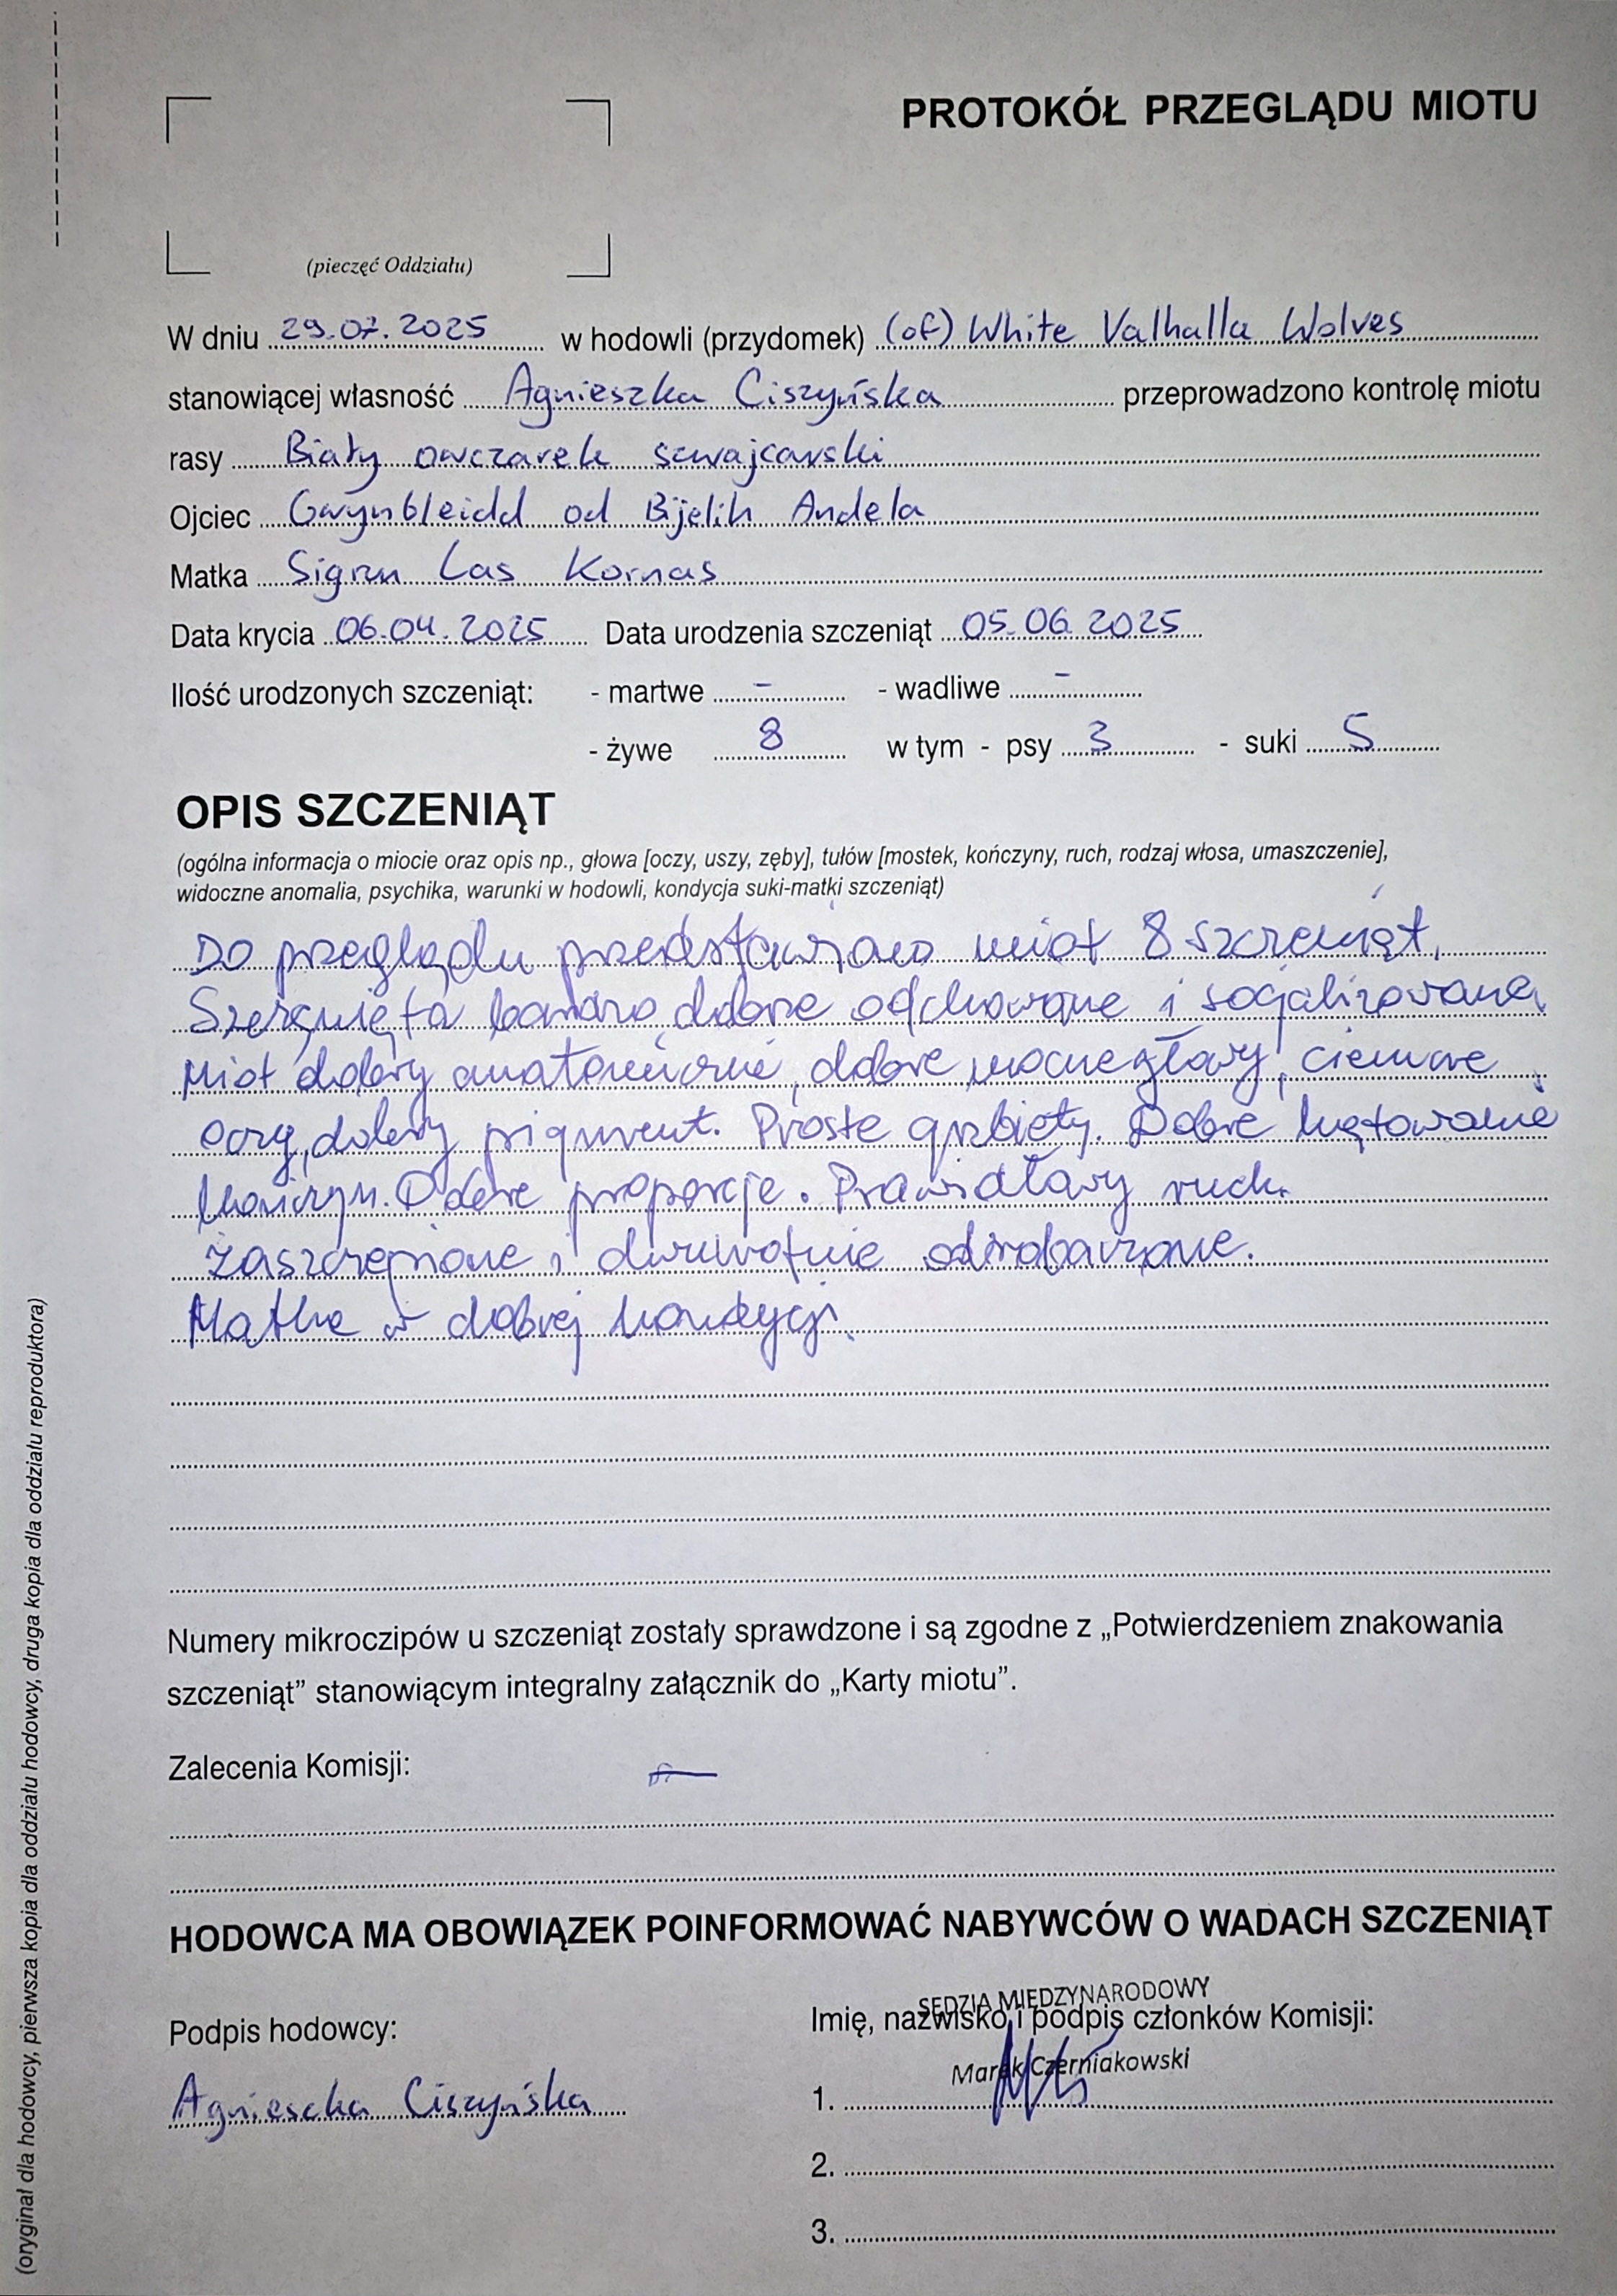 PROTOKÓŁ PRZEGLĄDU MIOTU
(pieczęć Oddziału)
W dniu 29.07.2025 w hodowli (przydomek) (of) White Valhalla Wolves
stanowiącej własność Agnieszka Ciszyńska przeprowadzono kontrolę miotu
rasy Biały owczarek szwajcarski
Ojciec Gwynbleidd od Bijelih Andela
Matka Sigrun Las Kornas
Data krycia 06.04.2025 Data urodzenia szczeniąt 05.06.2025
Ilość urodzonych szczeniąt: - martwe - - wadliwe -
- żywe 8 w tym - psy 3 - suki 5
OPIS SZCZENIĄT
(ogólna informacja o miocie oraz opis np., głowa [oczy, uszy, zęby], tułów [mostek, kończyny, ruch, rodzaj włosa, umaszczenie],
widoczne anomalia, psychika, warunki w hodowli, kondycja suki-matki szczeniąt)
Do przeglądu przedstawiono miot 8 szczeniąt.
Szczenięta bardzo dobrze odchowane i socjalizowane.
Miot dobry anatomicznie, dobre mocne głowy, ciemne
oczy, dobry pigment. Proste grzbiety. Dobre kątowanie
kończyn. Dobre proporcje. Prawidłowy ruch.
Zaszczepione i dwukrotnie odrobaczone.
Matka w dobrej kondycji.
Numery mikroczipów u szczeniąt zostały sprawdzone i są zgodne z „Potwierdzeniem znakowania
szczeniąt” stanowiącym integralny załącznik do „Karty miotu”.
Zalecenia Komisji: —
HODOWCA MA OBOWIĄZEK POINFORMOWAĆ NABYWCÓW O WADACH SZCZENIĄT
Podpis hodowcy:
Agnieszka Ciszyńska
SĘDZIA MIĘDZYNARODOWY
Imię, nazwisko i podpis członków Komisji:
Marek Czerniakowski
1.
2.
3.
(oryginał dla hodowcy, pierwsza kopia dla oddziału hodowcy, druga kopia dla oddziału reproduktora)